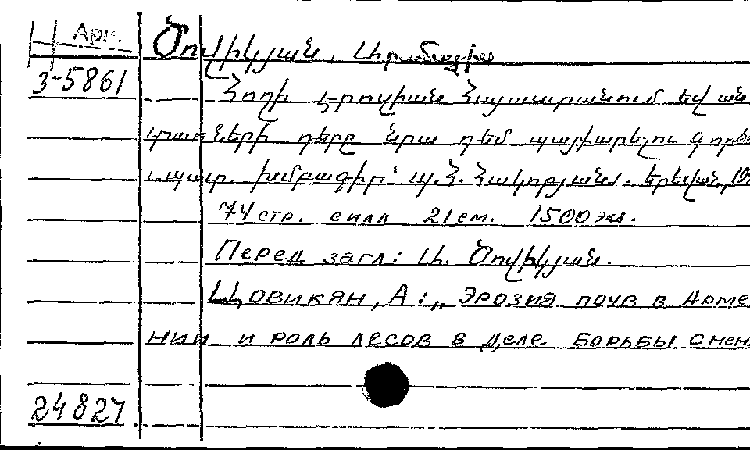 Арм.
Ծովիկյան,
3-5861
Հողի էրոզիան Հայաստանում եվ ան
տառների դերը նրա դեմ պայքարելու գործ
պատ. խմբագիր՝ Պ. Հ. Հակոբյան. Երեվան, 19
74 стр. с илл 21 см. 1500 экз.
Перед загл: Ա. Ծովիկյան.
Цовикян, А: „Эрозия почв в Арме
нии и роль лесов в деле борьбы с ней
24827